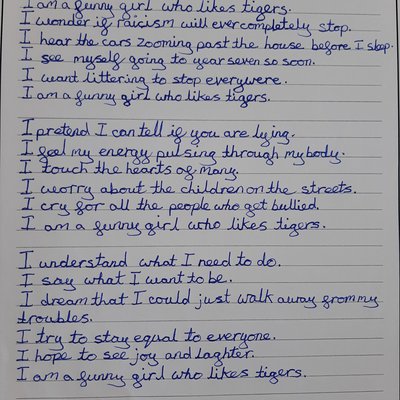 I am a funny girl who likes tigers.
I wonder if raicism will ever completely stop.
I hear the cars zooming past the house before I sleep.
I see myself going to year seven so soon.
I want littering to stop everywere.
I am a funny girl who likes tigers.
I pretend I can tell if you are lying.
I feel my energy pulsing through my body.
I touch the hearts of many.
I worry about the children on the streets.
I cry for all the people who get bullied.
I am a funny girl who likes tigers.
I understand what I need to do.
I say what I want to be.
I dream that I could just walk away from my
troubles.
I try to stay equal to everyone.
I hope to see joy and laghter.
I am a funny girl who likes tigers.